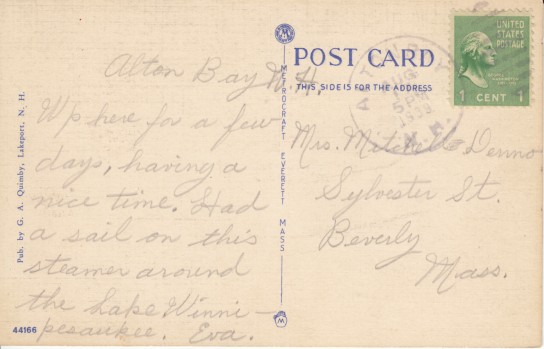 Alton Bay N.H.
Up here for a few
days, having a
nice time. Had
a sail on this
steamer around
the Lake Winni-
pesaukee. Eva.
Pub. by G. A. Quimby, Lakeport, N. H.
44166
METROCRAFT EVERETT MASS
POST CARD
THIS SIDE IS FOR THE ADDRESS
AUG
5 PM
N.H.
UNITED
STATES
POSTAGE
1 CENT 1
Mrs. Denno
Sylvester St.
Beverly
Mass.